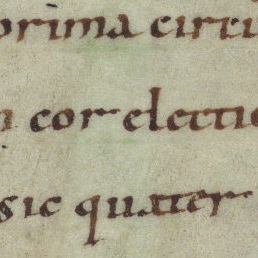 prima circu
n cor electio
sic quater